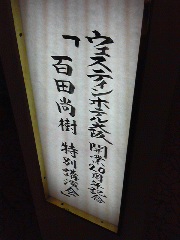 ウェスティンホテル大阪 開業20周年記念
「百田尚樹 特別講演会」